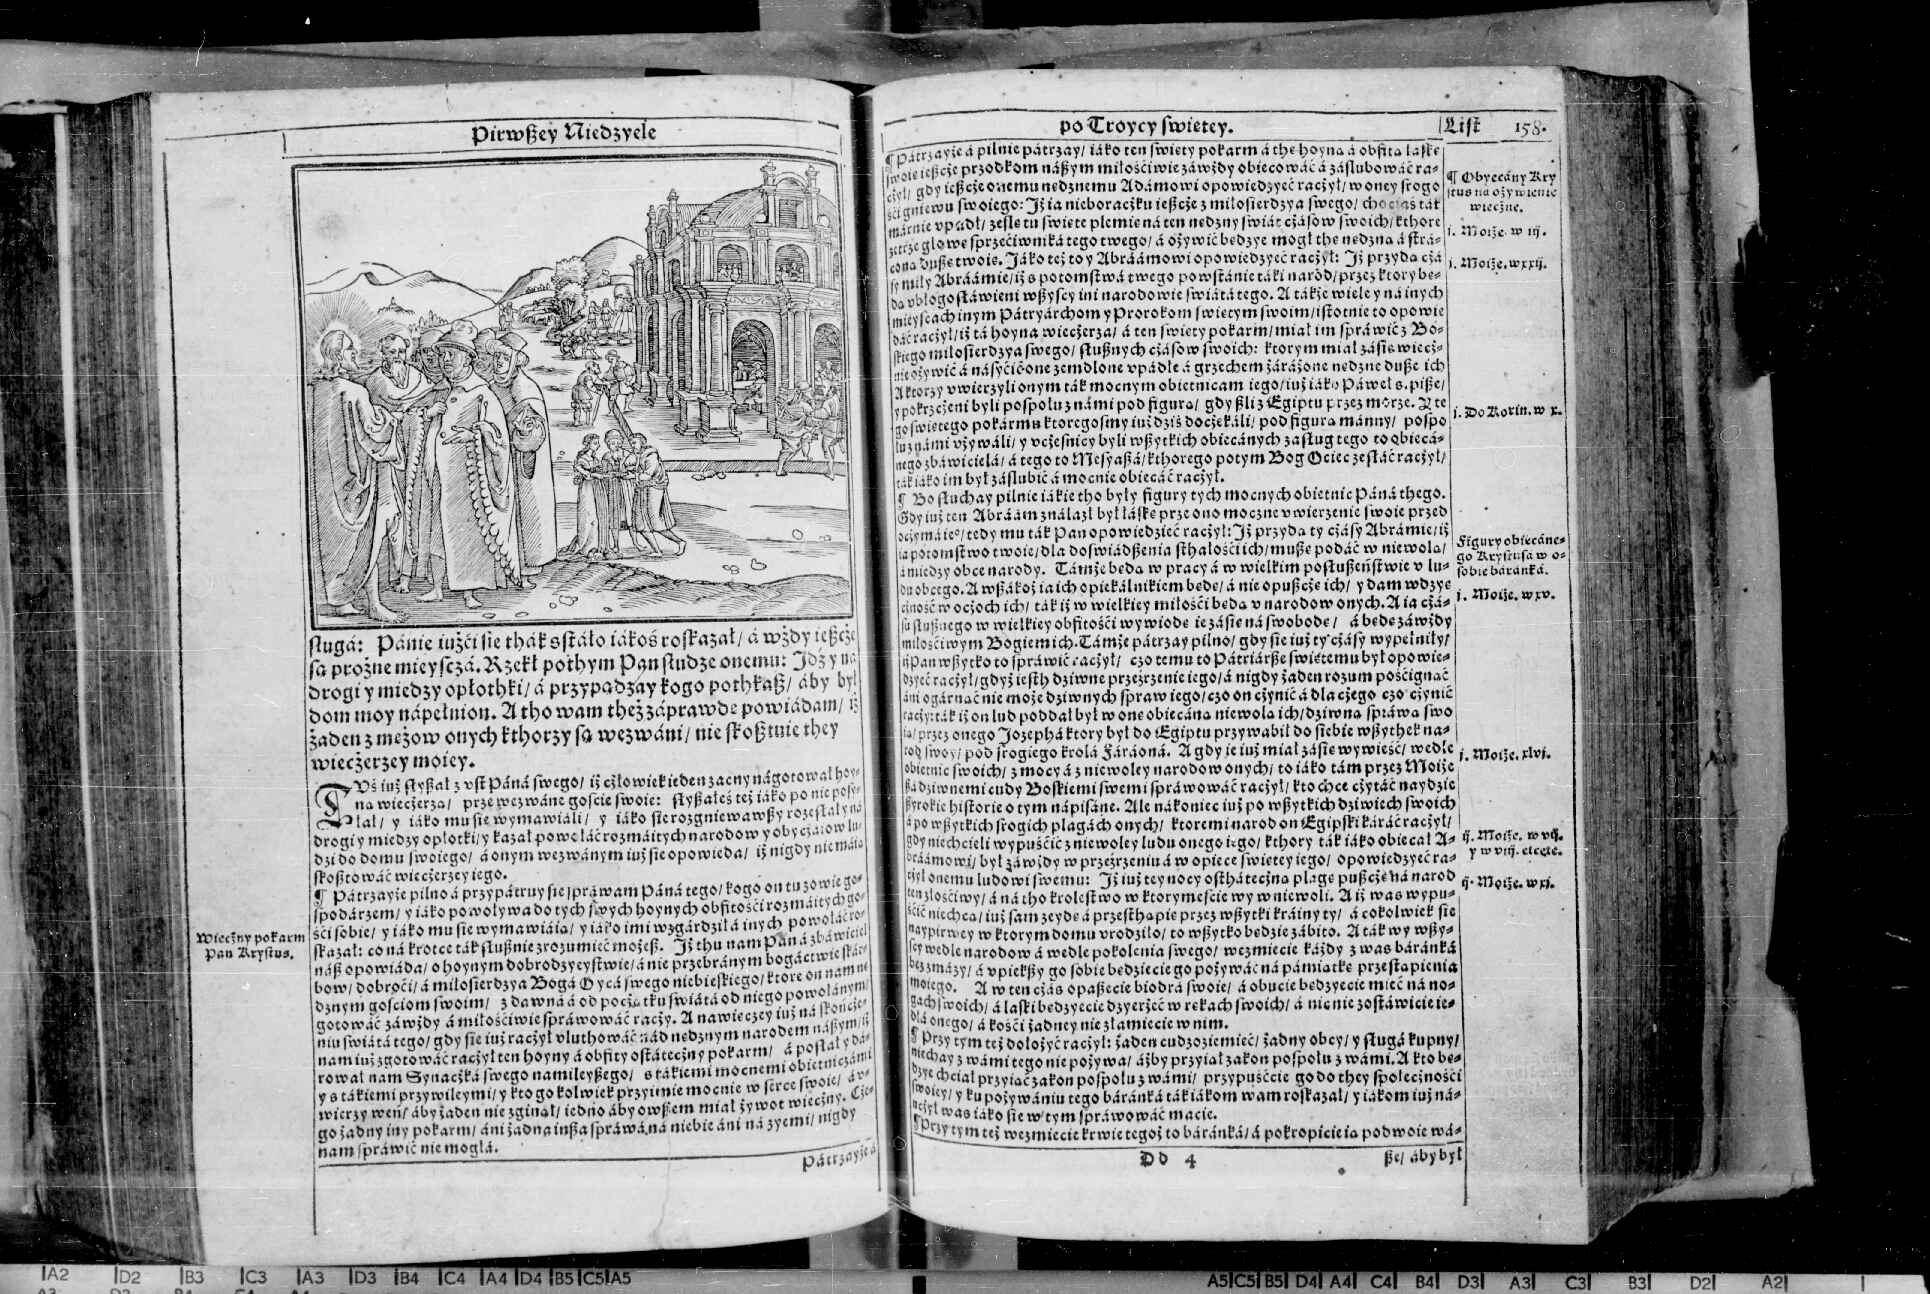 Pirwßey Niedzyele
sługá: Pánie iużći sie thák sstáło iákoś roskazał/ á wżdy ieszcże
są prożne mieyscżá. Rzekł pothym Pan słudze onemu: Idź y ná
drogi y miedzy opłothki/ á przypądzay kogo pothkasz/ áby był
dom moy nápełnion. A tho wam theż záprawdę powiádam/ iż
żaden z mężow onych kthorzy są wezwáni/ nie skosztuie they
wiecżerzey moiey.
TVś iuż słyszał z vst Páná swego/ iż człowiek ieden zacny nágotował hoy-
ną wiecżerzą/ prze wezwáne goście swoie: słyszałeś też iáko po nie pose-
łał/ y iáko mu sie wymawiáli/ y iáko sie rozgniewawszy rozesłał y ná
drogi y miedzy opłotki/ y kazał powołáć rozmáitych narodow y obycżáiow lu-
dzi do domu swoiego/ á onym wezwánym iuż sie opowieda/ iż nigdy nie máią
skosztowáć wiecżerzey iego.
¶ Pátrzayże pilno á przypátruy sie spráwam Páná tego/ kogo on tu zowie go-
spodárzem/ y iáko powoływa do tych swych hoynych obfitośći rozmáitych go-
śći sobie/ y iáko mu sie wymawiáią/ y iáko imi wzgárdził á inych powołáć ro-
skazał: co ná krotce ták słusznie zrozumieć możesz. Iż thu nam Pan á zbáwiciel
nász opowiáda/ o hoynym dobrodzyeystwie/ á nie przebránym bogáctwie skár-
bow/ dobroći/ á miłosierdzya Bogá Oycá swego niebieskiego/ ktore on nam nę-
dznym gościom swoim/ z dawná á od pocżątku świátá od niego powołánym/
gotowáć záwżdy á miłośćiwie spráwowáć racży. A nawiecżey iuż ná skońcże-
niu świátá tego/ gdy sie iuż racżył vlutowáć nád nędznym narodem nászym/ iż
nam iuż zgotowáć racżył ten hoyny á obfity ostátecżny pokarm/ á posłał y dá-
rował nam Synacżká swego namileyszego/ s tákiemi mocnemi obietnicżámi
y s tákiemi przywileymi/ y kto go kolwiek przyimie mocnie w serce swoie/ á v-
wierzy weń/ áby żaden nie zginął/ iedno áby owszem miał żywot wiecżny. Cże-
go żadny iny pokarm/ áni żadna insza spráwá ná niebie áni ná zyemi/ nigdy
nam spráwić nie mogłá.
Pátrzayże á
Wiecżny pokarm
Pan Krystus.
po Troycy swiętey.
List 158.
¶ Pátrzayże á pilnie pátrzay/ iáko ten święty pokarm á thę hoyną á obfitą łáskę
swoię ieszcże przodkom nászym miłośćiwie záwżdy obiecowáć á záslubowáć ra-
cżył/ gdy ieszcże onemu nędznemu Adámowi opowiedzyeć racżył/ w oney srogo
śći gniewu swoiego: Iż ia nieboracżku ieszcże z miłosierdzya swego/ chociaś ták
márnie vpadł/ ześlę tu święte plemię ná ten nędzny świát cżásow swoich/ kthore
zetrze głowę sprzećiwniká tego twego/ á ożywić będzye mogł thę nędzną á strá-
coną duszę twoię. Iáko też to y Abráámowi opowiedzyeć racżył: Iż przydą cżá
sy miły Abráámie/ iż s potomstwá twego powstánie táki narod/ przez ktory bę-
dą vbłogosłáwieni wszyscy ini narodowie świátá tego. A tákże wiele y ná inych
mieyscach inym Pátryárchom y Prorokom świętym swoim/ istotnie to opowie
dáć racżył/ iż tá hoyna wiecżerza/ á ten święty pokarm/ miał im spráwić z Bo-
skiego miłosierdzya swego/ słusznych cżásow swoich: ktorym miał zásię wiecż-
nie ożywić á násyćić one zemdlone vpádłe á grzechem záráżone nędzne dusze ich
A ktorzy vwierzyli onym ták mocnym obietnicam iego/ iuż iáko Páweł s. pisze/
y pokrzczeni byli pospołu z námi pod figurą/ gdy szli z Egiptu przez morze. Y te
go świętego pokármu ktoregosmy iuż dziś docżekáli/ pod figurą mánny/ pospo
łu z námi vżywáli/ y vcżesnicy byli wszytkich obiecánych zasług tego to obiecá-
nego zbáwicielá/ á tego to Mesyaszá/ kthorego potym Bog Ociec zesłáć racżył/
ták iáko im był záslubić á mocnie obiecáć racżył.
¶ Bo słuchay pilnie iákie tho były figury tych mocnych obietnic Páná thego.
Gdy iuż ten Abráám ználazł był łáskę prze ono mocne vwierzenie swoie przed
ocżymá ie°/ tedy mu ták Pan opowiedzieć racżył: Iż przydą ty cżásy Abrámie/ iż
ia potomstwo twoie/ dla doswiádszenia sthałośći ich/ muszę podáć w niewolą/
á miedzy obce narody. Támże będą w pracy á w wielkim posłuszeństwie v lu-
du obcego. A wszákoż ia ich opiekálnikiem będę/ á nie opuszcżę ich/ y dam wdzyę
cżność w ocżoch ich/ ták iż w wielkiey miłośći będą v narodow onych. A ia cżá-
su słusznego w wielkiey obfitośći wywiodę ie zásię ná swobodę/ á będę záwżdy
miłośćiwym Bogiem ich. Támże pátrzay pilno/ gdy sie iuż ty cżásy wypełniły/
iż Pan wszytko to spráwić racżył/ czo temu to Pátriársze świętemu był opowie-
dzyeć racżył/ gdyż iesth dziwne przeźrzenie iego/ á nigdy żaden rozum pośćignąć
áni ogárnąć nie może dziwnych spraw iego/ czo on cżynić á dla cżego czo cżynić
racży: ták iż on lud poddał był w onę obiecáną niewolą ich/ dziwną spráwą swo
ią/ przez onego Iozephá ktory był do Egiptu przywabił do siebie wszythek na-
rod swoy/ pod srogiego krolá Fáráoná. A gdy ie iuż miał zásię wywieść/ wedle
obietnic swoich/ z mocy á z niewoley narodow onych/ to iáko tám przez Moiże
szá dziwnemi cudy Boskiemi swemi spráwowáć racżył/ kto chce cżytáć naydzie
szyrokie historie o tym nápisáne. Ale nákoniec iuż po wszytkich dziwiech swoich
á po wszytkich srogich plagách onych/ ktoremi narod on Egipski káráć racżył/
gdy niechcieli wypuśćić z niewoley ludu onego iego/ kthory ták iáko obiecał A-
bráámowi/ był záwżdy w przeźrzeniu á w opiece świętey iego/ opowiedzyeć ra-
cżył onemu ludowi swemu: Iż iuż tey nocy osthátecżną plagę puszcżę ná narod
ten złosćiwy/ á ná tho krolestwo w ktorymeście wy w niewoli. A iż was wypu-
śćić niechcą/ iuż sam zeydę á przesthąpię przez wszytki kráiny ty/ á cokolwiek sie
naypirwey w ktorym domu vrodziło/ to wszytko będzie zábito. A ták wy wszy-
scy wedle narodow á wedle pokolenia swego/ weźmiecie káżdy z was báránká
bez zmázy/ á vpiekszy go sobie będziecie go pożywáć ná pámiątkę przestąpienia
moiego. A w ten cżás opaszecie biodrá swoie/ á obucie będzyecie mieć ná no-
gach swoich/ á laski będzyecie dzyerżeć w rękach swoich/ á nic nie zostáwicie ie-
dlá onego/ á kośći żadney nie złamiecie w nim.
¶ Przy tym też dołożyć racżył: żaden cudzoziemieć/ żadny obcy/ y sługá kupny/
niechay z wámi tego nie pożywa/ áżby przyiął zakon pospołu z wámi. A kto bę-
dzye chciał przyiąć zakon pospołu z wámi/ przypuśćcie go do they społecżnośći
swoiey/ y ku pożywániu tego báránká ták iákom wam roskazał/ y iákom iuż ná-
ucżył was iáko sie w tym spráwowáć macie.
¶ Przy tym też weźmiecie krwie tegoż to báránká/ á pokropicie ią podwoie wá-
Dd 4
sze/ áby był
¶ Obyecány Kry
stus ná ożywienie
wiecżne.
j. Moiże. w iij.
j. Moiże. w xxij.
j. Do Korin. w x.
Figury obiecáne-
go Krystusá w o-
sobie báránká.
j. Moiże. w xv.
j. Moiże. xlvi.
ij. Moiże. w vij.
y w viij. etcęte.
ij. Moiże. w xj.
A2 D2 B3 C3 A3 D3 B4 C4 A4 D4 B5 C5 A5
A5 C5 B5 D4 A4 C4 B4 D3 A3 C3 B3 D2 A2